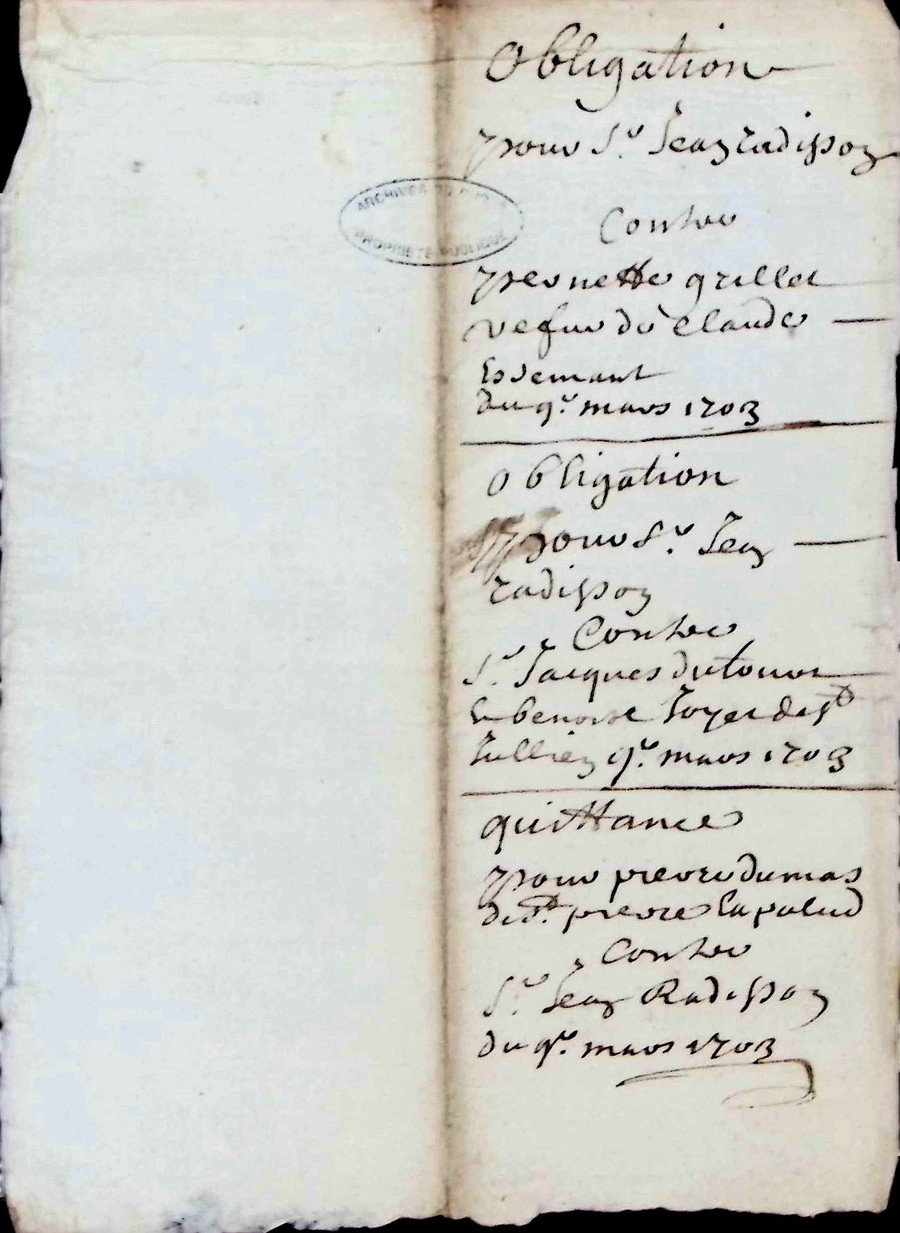 Obligation
pour Sr. Jean radisson
Contre
pernette grillet
vefue de Claude
du 9e. mars 1703
Obligation
pour Sr. Jean
radisson
Contre
Sr. Jacques dutour
et benoist de St
Jullien 9e. mars 1703
quittance
pour pierre dumas
de St. pierre la palud
Contre
Sr. Jean Radisson
du 9e. mars 1703
ARCHIVES DU
PROPRIETE PUBLIQUE